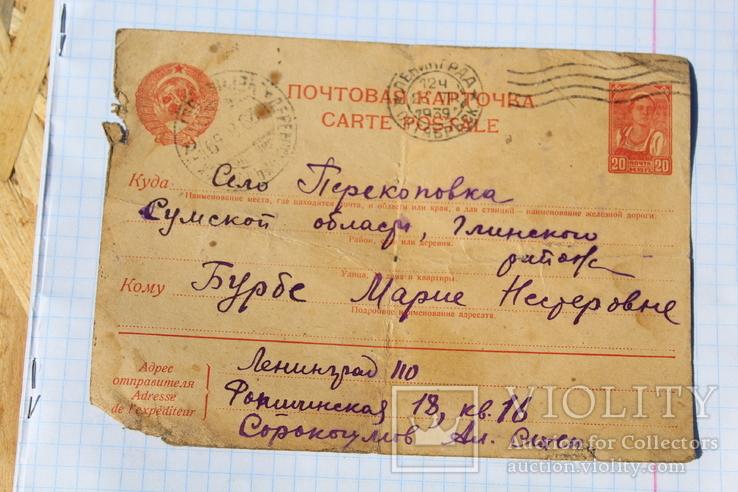 ЛЕНИНГРАД
12Ч
1939
ПОЧТОВАЯ КАРТОЧКА
CARTE POSTALE
20 ПОЧТА СССР 20
Куда Село Перекоповка
Наименование места, где находится почта, и области или края, а для станций – наименование железной дороги
Сумской области, Глинского
Район, село или деревня.
района
Улица, № дома и квартиры.
Кому Бурбе Марие Нестеровне
Подробное наименование адресата.
Адрес отправителя
Adresse de l'expéditeur
Ленинград 110
18, кв. 16
Сорокоумов Ал.
VIOLITY
Auction for Collectors
auction.violity.com